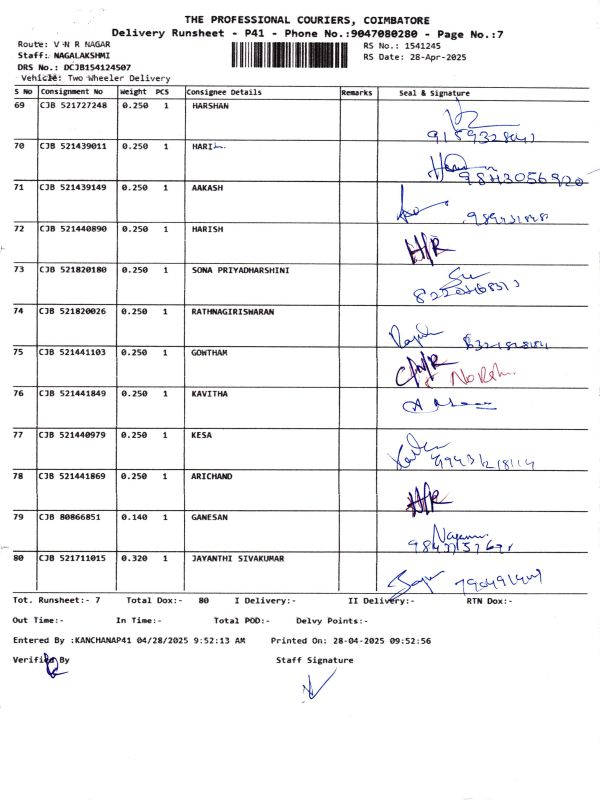 THE PROFESSIONAL COURIERS, COIMBATORE
Delivery Runsheet - P41 - Phone No.:9047080280 - Page No.:7
Route: V N R NAGAR
RS No.: 1541245
Staff: NAGALAKSHMI
RS Date: 28-Apr-2025
DRS No.: DCJB154124507
Vehicle: Two Wheeler Delivery
S No Consignment No Weight PCS Consignee Details Remarks Seal & Signature
69 CJB 521727248 0.250 1 HARSHAN
70 CJB 521439011 0.250 1 HARI
9843056920
71 CJB 521439149 0.250 1 AAKASH
72 CJB 521440890 0.250 1 HARISH
H/R
73 CJB 521820180 0.250 1 SONA PRIYADHARSHINI
74 CJB 521820026 0.250 1 RATHNAGIRISWARAN
75 CJB 521441103 0.250 1 GOWTHAM
76 CJB 521441849 0.250 1 KAVITHA
77 CJB 521440979 0.250 1 KESA
78 CJB 521441869 0.250 1 ARICHAND
H/R
79 CJB 80866851 0.140 1 GANESAN
80 CJB 521711015 0.320 1 JAYANTHI SIVAKUMAR
Tot. Runsheet:- 7 Total Dox:- 80 I Delivery:- II Delivery:- RTN Dox:-
Out Time:- In Time:- Total POD:- Delvy Points:-
Entered By :KANCHANAP41 04/28/2025 9:52:13 AM Printed On: 28-04-2025 09:52:56
Verified By Staff Signature